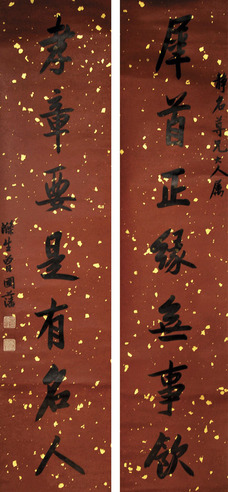 尊兄大人属
犀首正緣無事飲
孝章要是有名人
滌生曾國藩